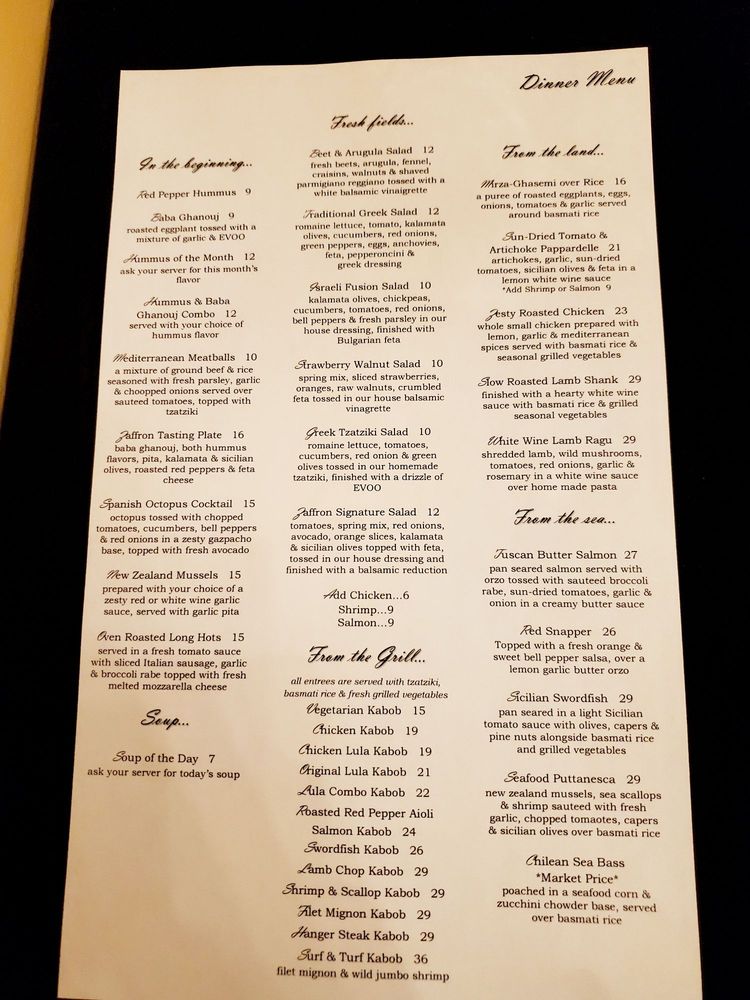 Dinner Menu
In the beginning...
Red Pepper Hummus 9
Baba Ghanouj 9
roasted eggplant tossed with a
mixture of garlic & EVOO
Hummus of the Month 12
ask your server for this month's
flavor
Hummus & Baba
Ghanouj Combo 12
served with your choice of
hummus flavor
Mediterranean Meatballs 10
a mixture of ground beef & rice
seasoned with fresh parsley, garlic
& choopped onions served over
sauteed tomatoes, topped with
tzatziki
Zaffron Tasting Plate 16
baba ghanouj, both hummus
flavors, pita, kalamata & sicilian
olives, roasted red peppers & feta
cheese
Spanish Octopus Cocktail 15
octopus tossed with chopped
tomatoes, cucumbers, bell peppers
& red onions in a zesty gazpacho
base, topped with fresh avocado
New Zealand Mussels 15
prepared with your choice of a
zesty red or white wine garlic
sauce, served with garlic pita
Oven Roasted Long Hots 15
served in a fresh tomato sauce
with sliced Italian sausage, garlic
& broccoli rabe topped with fresh
melted mozzarella cheese
Soup...
Soup of the Day 7
ask your server for today's soup
Fresh fields...
Beet & Arugula Salad 12
fresh beets, arugula, fennel,
craisins, walnuts & shaved
parmigiano reggiano tossed with a
white balsamic vinaigrette
Traditional Greek Salad 12
romaine lettuce, tomato, kalamata
olives, cucumbers, red onions,
green peppers, eggs, anchovies,
feta, pepperoncini &
greek dressing
Israeli Fusion Salad 10
kalamata olives, chickpeas,
cucumbers, tomatoes, red onions,
bell peppers & fresh parsley in our
house dressing, finished with
Bulgarian feta
Strawberry Walnut Salad 10
spring mix, sliced strawberries,
oranges, raw walnuts, crumbled
feta tossed in our house balsamic
vinagrette
Greek Tzatziki Salad 10
romaine lettuce, tomatoes,
cucumbers, red onion & green
olives tossed in our homemade
tzatziki, finished with a drizzle of
EVOO
Zaffron Signature Salad 12
tomatoes, spring mix, red onions,
avocado, orange slices, kalamata
& sicilian olives topped with feta,
tossed in our house dressing and
finished with a balsamic reduction
Add Chicken...6
Shrimp...9
Salmon...9
From the Grill...
all entrees are served with tzatziki,
basmati rice & fresh grilled vegetables
Vegetarian Kabob 15
Chicken Kabob 19
Chicken Lula Kabob 19
Original Lula Kabob 21
Lula Combo Kabob 22
Roasted Red Pepper Aioli
Salmon Kabob 24
Swordfish Kabob 26
Lamb Chop Kabob 29
Shrimp & Scallop Kabob 29
Filet Mignon Kabob 29
Hanger Steak Kabob 29
Surf & Turf Kabob 36
filet mignon & wild jumbo shrimp
From the land...
Mirza-Ghasemi over Rice 16
a puree of roasted eggplants, eggs,
onions, tomatoes & garlic served
around basmati rice
Sun-Dried Tomato &
Artichoke Pappardelle 21
artichokes, garlic, sun-dried
tomatoes, sicilian olives & feta in a
lemon white wine sauce
*Add Shrimp or Salmon 9
Zesty Roasted Chicken 23
whole small chicken prepared with
lemon, garlic & mediterranean
spices served with basmati rice &
seasonal grilled vegetables
Slow Roasted Lamb Shank 29
finished with a hearty white wine
sauce with basmati rice & grilled
seasonal vegetables
White Wine Lamb Ragu 29
shredded lamb, wild mushrooms,
tomatoes, red onions, garlic &
rosemary in a white wine sauce
over home made pasta
From the sea...
Tuscan Butter Salmon 27
pan seared salmon served with
orzo tossed with sauteed broccoli
rabe, sun-dried tomatoes, garlic &
onion in a creamy butter sauce
Red Snapper 26
Topped with a fresh orange &
sweet bell pepper salsa, over a
lemon garlic butter orzo
Sicilian Swordfish 29
pan seared in a light Sicilian
tomato sauce with olives, capers &
pine nuts alongside basmati rice
and grilled vegetables
Seafood Puttanesca 29
new zealand mussels, sea scallops
& shrimp sauteed with fresh
garlic, chopped tomaotes, capers
& sicilian olives over basmati rice
Chilean Sea Bass
*Market Price*
poached in a seafood corn &
zucchini chowder base, served
over basmati rice